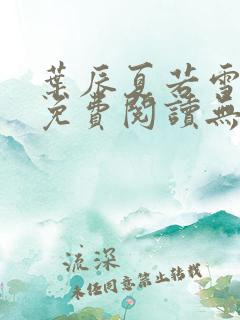 葉辰夏若雪
免費閱讀無
流深
未經同意禁止轉載